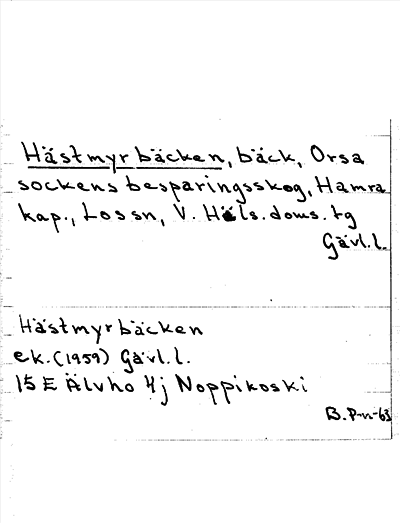 Hästmyrbäcken, bäck, Orsa
sockens besparingsskog, Hamra
kap., Lossn, V. Häls. doms. tg
Gävl.l.
Hästmyrbäcken
ek. (1959) Gävl.l.
15 E Älvho 4j Noppikoski
B. P-n-63